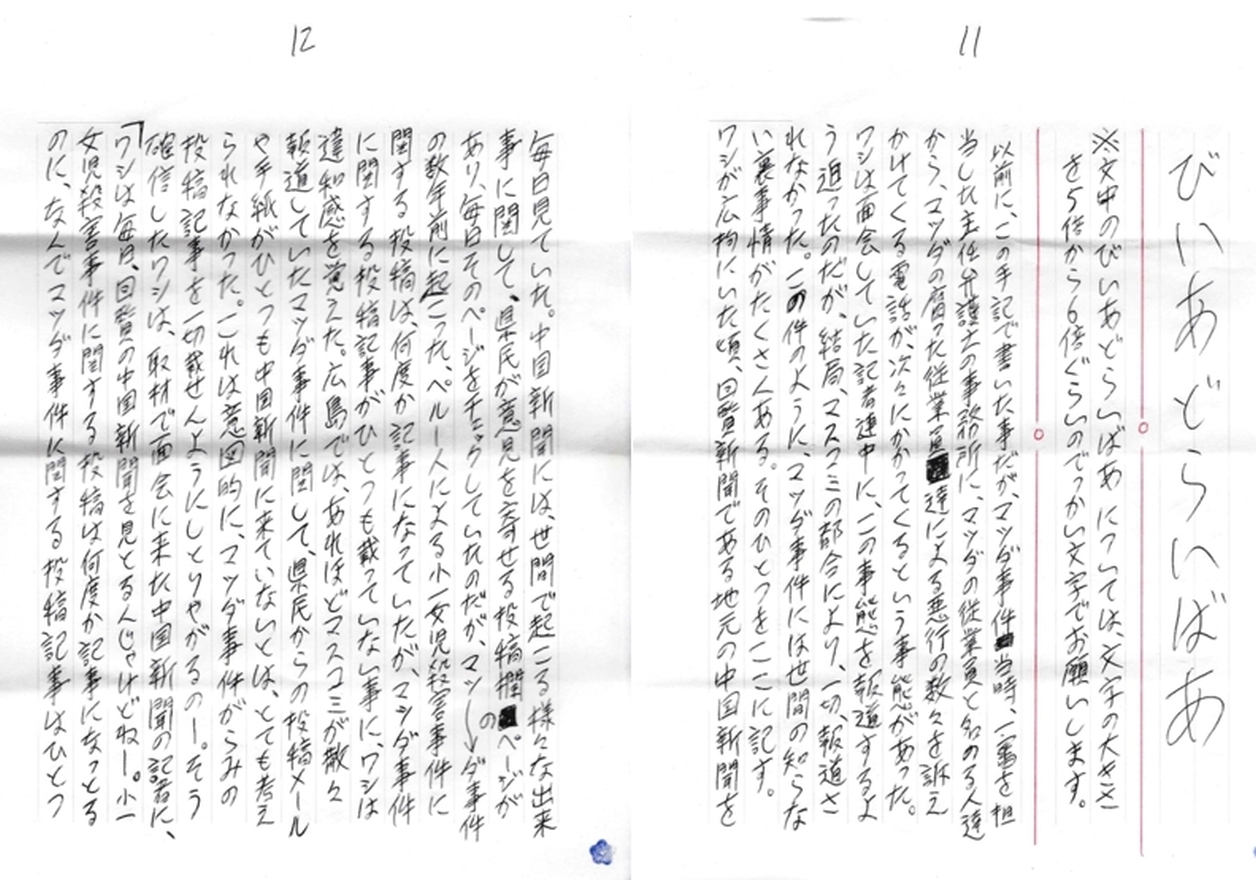 11
びいあどらいばあ
※文中のびいあどらいばあ については、文字の大きさ
を5倍から6倍ぐらいのでっかい文字でお願いします。
以前に、この手記で書いた事だが、マツダ事件当時、一審を担
当した主任弁護士の事務所に、マツダの従業員と名のる人達
から、マツダの腐った従業員達による悪行の数々を訴え
かけてくる電話が、次々にかかってくるという事態があった。
ワシは面会していた記者連中に、この事態を報道するよ
う迫ったのだが、結局、マスコミの都合により、一切、報道さ
れなかった。この件のように、マツダ事件には世間の知らな
い裏事情がたくさんある。そのひとつをここに記す。
ワシが広拘にいた頃、回覧新聞である地元の中国新聞を
12
毎日見ていた。中国新聞には世間で起こる様々な出来
事に関して、県民が意見を寄せる投稿欄のページが
あり、毎日そのページをチェックしていたのだが、マツダ事件
の数年前に起こった、ペルー人による小一女児殺害事件に
関する投稿は、何度か記事になっていたが、マツダ事件
に関する投稿記事がひとつも載っていない事に、ワシは
違和感を覚えた。広島では、あれほどマスコミが散々
報道していたマツダ事件に関して、県民からの投稿メール
や手紙がひとつも中国新聞に来ていないとは、とても考え
られなかった。これは意図的に、マツダ事件がらみの
投稿記事を一切載せんようにしとりやがるのー。そう
確信したワシは、取材で面会に来た中国新聞の記者に、
「ワシは毎日、回覧の中国新聞を見とるんじゃけどねー。小一
女児殺害事件に関する投稿は何度か記事になっとる
のに、なんでマツダ事件に関する投稿記事はひとつ